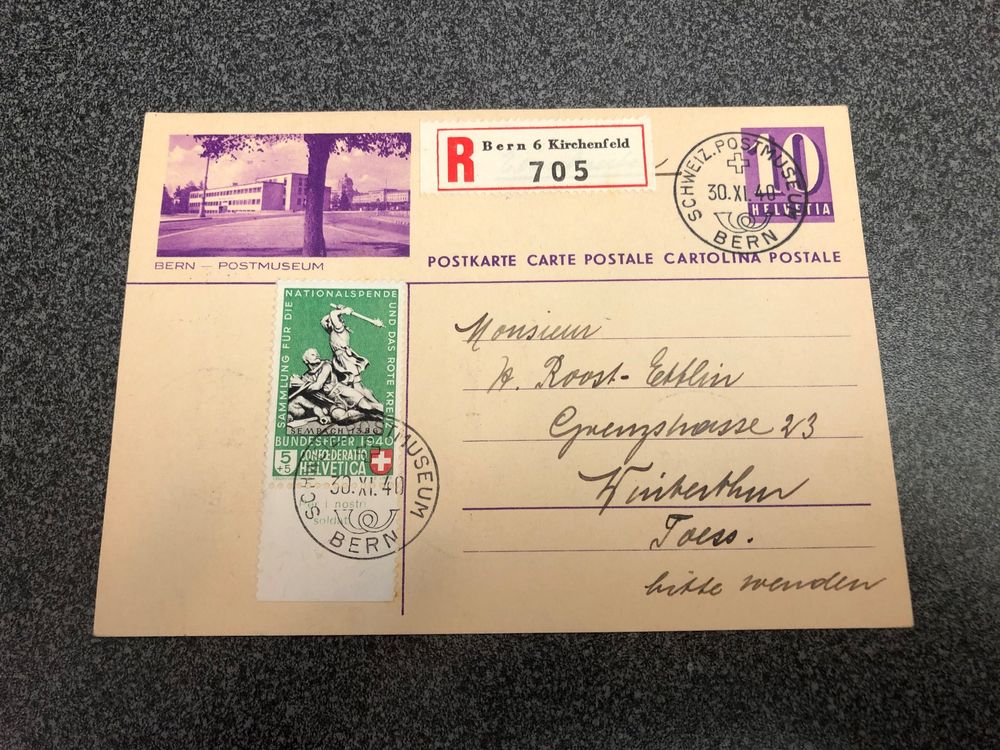 BERN — POSTMUSEUM
R Bern 6 Kirchenfeld
705
10
HELVETIA
SCHWEIZ. POSTMUSEUM
30.XI.40
BERN
POSTKARTE CARTE POSTALE CARTOLINA POSTALE
SAMMLUNG FÜR DIE NATIONALSPENDE UND DAS ROTE KREUZ
SEMPACH 1386
BUNDESFEIER 1940
5+5
CONFOEDERATIO
HELVETICA
i nostri
soldati
SCHWEIZ. POSTMUSEUM
30.XI.40
BERN
Monsieur
H. Roost-Ettlin
Grenzstrasse 23
Winterthur
Toess.
bitte wenden